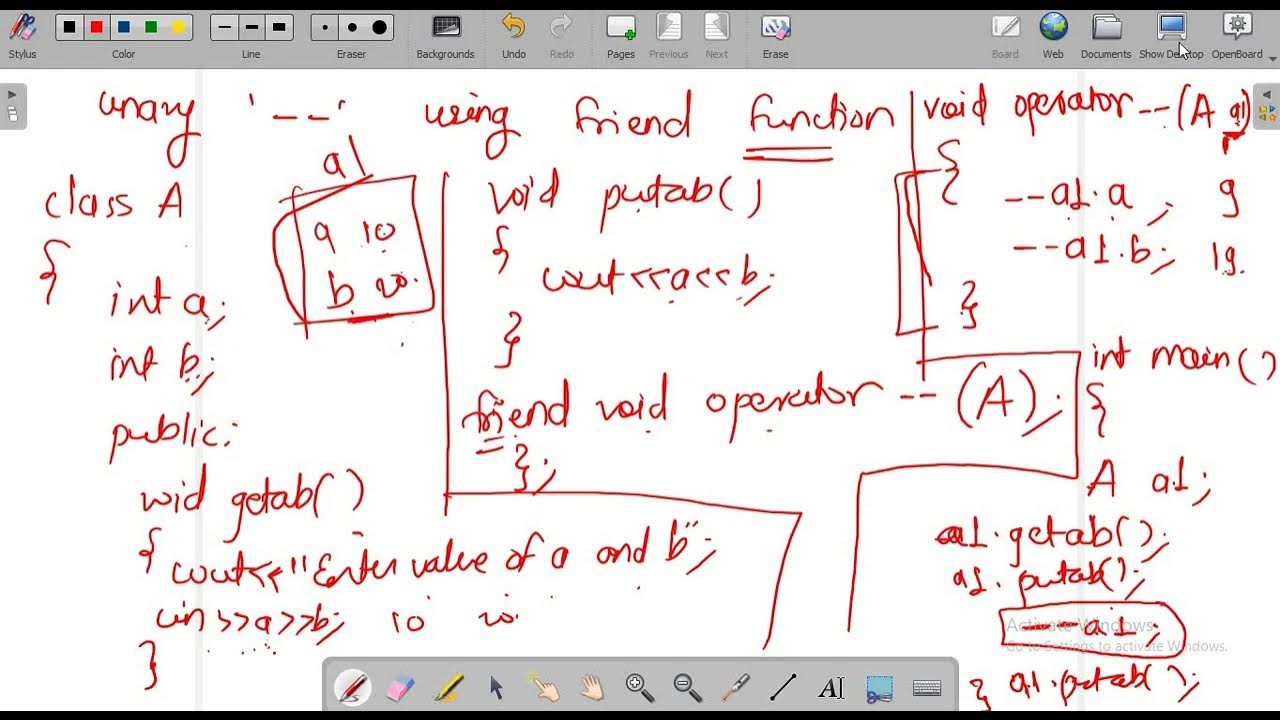 Stylus
Color
Line
Eraser
Backgrounds
Undo
Redo
Pages
Previous
Next
Erase
Board
Web
Documents
Show Desktop
OpenBoard
unary '--' using friend function
class A
{
int a;
int b;
public:
void getab()
{
cout<<"Enter value of a and b";
cin>>a>>b; 10 20
}
a1
a 10
b 20
void putab()
{
cout<<a<<b;
}
friend void operator -- (A);
};
void operator --(A a1)
{
--a1.a ; 9
--a1.b; 19
}
int main()
{
A a1;
a1.getab();
a1.putab();
--a1;
a1.putab();
}
Activate Windows
Go to Settings to activate Windows.